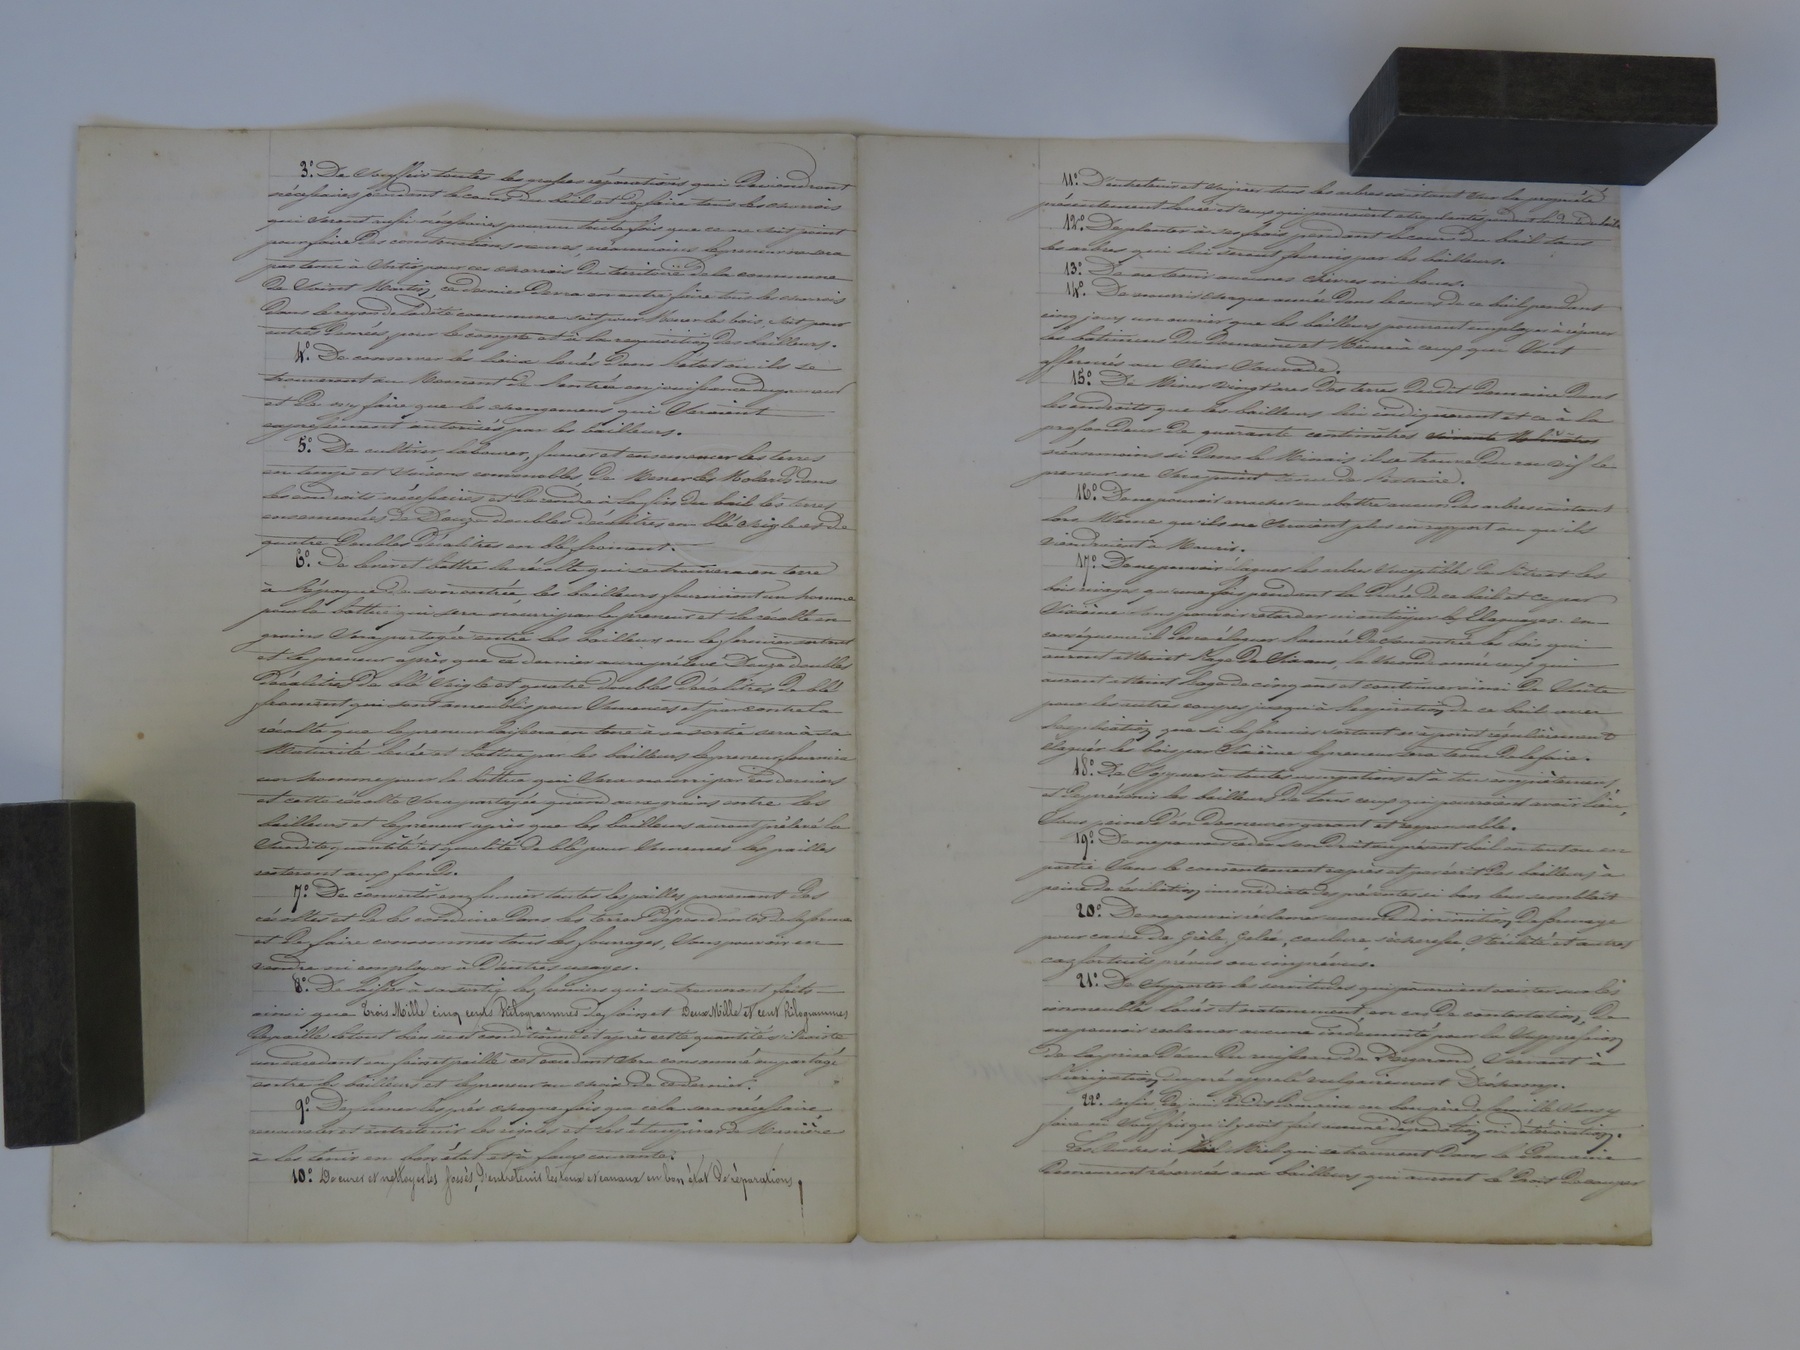 3º. De Souffrir toutes les grosses réparations qui Deviendront
nécessaires pendant le cours du bail et de faire tous les charrois
qui seront aussi nécessaires pourvu toutefois que ce ne soit point
pour faire des constructions neuves, néanmoins le preneur ne sera
pas tenu à Sortir pour ces charrois du territoire de la commune
de Saint Martin, ce dernier devra en outre faire tous les charrois
Dans le rayon de ladite commune soit pour Mener les bois, soit pour
autres Denrées pour le compte et à la requisition des bailleurs.
4º. De conserver les lieux loués Dans l'état où ils se
trouveront au Moment de l'entrée en jouissance du preneur
et De n'y faire que les changemens qui Seraient
expressément autorisés par les bailleurs.
5º. De cultiver, labourer, fumer et ensemencer les terres
en temps et Saisons convenables, de Mener les Molards dans
les endroits nécessaires et De rendre à la fin du bail les terres
ensemencées de Douze doubles décalitres en blé Seigle et De
quatre Doubles Décalitres en blé froment.
6º. De lever et battre la récolte qui se trouvera en terre
à l'époque de son entrée, les bailleurs fourniront un homme
pour la battue qui sera nourri par le preneur et la récolte en
grains Sera partagée entre les bailleurs ou le fermier sortant
et le preneur après que ce dernier aura prélevé Douze doubles
Décalitres De blé Seigle et quatre doubles Décalitres De blé
froment qui sont ameublis pour Semences et par contre la
récolte que le preneur laissera en terre à sa sortie sera à sa
Maturité levée et battue par les bailleurs le preneur fournira
un homme pour la battue qui Sera nourri par ces derniers
et cette récolte Sera partagée quand aux grains entre les
bailleurs et le preneur après que les bailleurs auront prélevé la
Susdite quantité et qualité de blé pour Semences les pailles
resteront aux fonds.
7º. De convertir en fumier toutes les pailles provenant des
récoltes et De les conduire Dans les terres Dépendantes de la ferme
et De faire consommer tous les fourrages, Sans pouvoir en
vendre ni employer à D'autres usages.
8º. De laisser à sa sortie les fumiers qui se trouveront faits
ainsi que Trois Mille cinq cents Kilogrammes De foin et Deux Mille et cent Kilogrammes
De paille le tout bien sec et conditionné et après cette quantité s'il existe
un excédant en foin et paille cet excédant Sera consommé ou partagé
entre les bailleurs et le preneur au choix de ce dernier.
9º. De fumer les prés chaque fois que cela sera nécessaire,
renouveler et entretenir les rigoles et les étanjines de Manière
à les tenir en bon état et à faux courante.
10º. De curer et nettoyer les fossés, D'entretenir les eaux et canaux en bon état De réparations,
11º. D'entretenir et soigner tous les arbres existant Sur la propriété
présentement louée et ceux qui pourraient être plantés pendant la Durée du bail.
12º. De planter à ses frais pendant le cours Du bail tous
les arbres qui lui seront fournis par les bailleurs.
13º. De ne tenir aucunes chèvres ou boucs.
14º. De nourrir chaque année Dans le cours de ce bail pendant
cinq jours un ouvrier que les bailleurs pourront employer à réparer
les bâtimens Du Domaine et Même à ceux qui Sont
affermés au Sieur
15º. De Miner vingt ares Des terres Dudit Domaine Dans
les endroits que les bailleurs lui indiqueront et ce à la
profondeur De quarante centimètres
néanmoins si Dans le Minais il se trouve Du roc vif le
preneur ne Sera point tenu de l'extraire.
16º. De ne pouvoir arracher ou abattre aucun Des arbres existant
lors Même qu'ils ne Seraient plus en rapport ou qu'ils
viendraient à Mourir.
17º. De ne pouvoir élaguer les arbres Susceptibles De l'être et les
bois rivages qu'une fois pendant la Durée de ce bail et ce par
Sixième sans pouvoir retarder ni anticiper les Elagages. en
conséquence il Devra élaguer l'année De son entrée les bois qui
auront atteint l'age De Six ans, la Seconde année ceux qui
auront atteint l'age de cinq ans et continuer ainsi De Suite
pour les autres coupes jusqu'à l'expiration de ce bail avec
explication que si le fermier sortant n'a point régulièrement
élagué les bois par Sixième le preneur sera tenu De le faire.
18º. De s'opposer à toutes usurpations et à tous empiètemens
et De prévenir les bailleurs De tous ceux qui pourraient avoir lieu,
Sous peine D'en Demeurer garant et responsable.
19º. De ne pouvoir céder son Droit au présent bail en tout ou en
partie Sans le consentement exprès et par écrit Des bailleurs à
peine De résiliation immédiate des présentes si bon leur semblait
20º. De ne pouvoir réclamer aucune Diminution De fermage
pour cause de Grêle, Gelée, coulure, sécheresse, Stérilité et autres
cas fortuits prévus ou imprévus.
21º. De Supporter les servitudes qui pourraient exister sur les
immeubles loués et notamment en cas de contestation, De
ne pouvoir réclamer aucune indemnité pour la Suppression
De la prise D'eau Du ruisseau de Servant à
l'irrigation du pré appelé vulgairement
22º. enfin De jouir Dudit Domaine en bon père de famille Sans y
faire ni Souffrir qu'il y soit fait aucune dégradation ni détérioration.
Les ruches à Miel qui se trouvent Dans le Domaine
Demeurent réservées aux bailleurs qui auront le Droit De